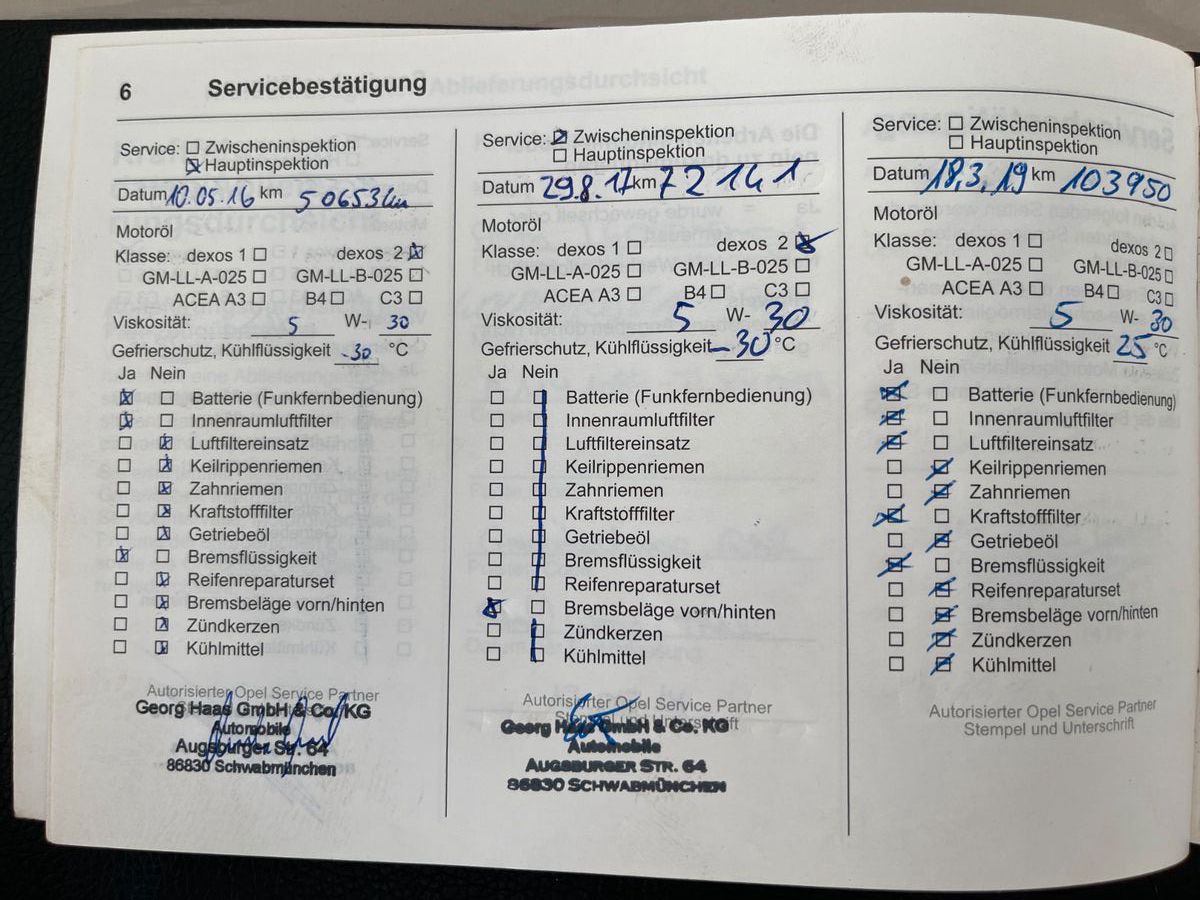 6 Servicebestätigung
Service: Zwischeninspektion
Hauptinspektion
Datum 10.05.16 km 50653km
Motoröl
Klasse: dexos 1 dexos 2
GM-LL-A-025 GM-LL-B-025
ACEA A3 B4 C3
Viskosität: 5 W- 30
Gefrierschutz, Kühlflüssigkeit -30 °C
Ja Nein
Batterie (Funkfernbedienung)
Innenraumluftfilter
Luftfiltereinsatz
Keilrippenriemen
Zahnriemen
Kraftstofffilter
Getriebeöl
Bremsflüssigkeit
Reifenreparaturset
Bremsbeläge vorn/hinten
Zündkerzen
Kühlmittel
Autorisierter Opel Service Partner
Georg Haas GmbH & Co. KG
Automobile
Augsburger Str. 64
86830 Schwabmünchen
Service: Zwischeninspektion
Hauptinspektion
Datum 29.8.17 km 72141
Motoröl
Klasse: dexos 1 dexos 2
GM-LL-A-025 GM-LL-B-025
ACEA A3 B4 C3
Viskosität: 5 W- 30
Gefrierschutz, Kühlflüssigkeit -30 °C
Ja Nein
Batterie (Funkfernbedienung)
Innenraumluftfilter
Luftfiltereinsatz
Keilrippenriemen
Zahnriemen
Kraftstofffilter
Getriebeöl
Bremsflüssigkeit
Reifenreparaturset
Bremsbeläge vorn/hinten
Zündkerzen
Kühlmittel
Autorisierter Opel Service Partner
Stempel und Unterschrift
Georg Haas GmbH & Co. KG
Automobile
Augsburger Str. 64
86830 Schwabmünchen
Service: Zwischeninspektion
Hauptinspektion
Datum 18.3.19 km 103950
Motoröl
Klasse: dexos 1 dexos 2
GM-LL-A-025 GM-LL-B-025
ACEA A3 B4 C3
Viskosität: 5 W- 30
Gefrierschutz, Kühlflüssigkeit 25 °C
Ja Nein
Batterie (Funkfernbedienung)
Innenraumluftfilter
Luftfiltereinsatz
Keilrippenriemen
Zahnriemen
Kraftstofffilter
Getriebeöl
Bremsflüssigkeit
Reifenreparaturset
Bremsbeläge vorn/hinten
Zündkerzen
Kühlmittel
Autorisierter Opel Service Partner
Stempel und Unterschrift